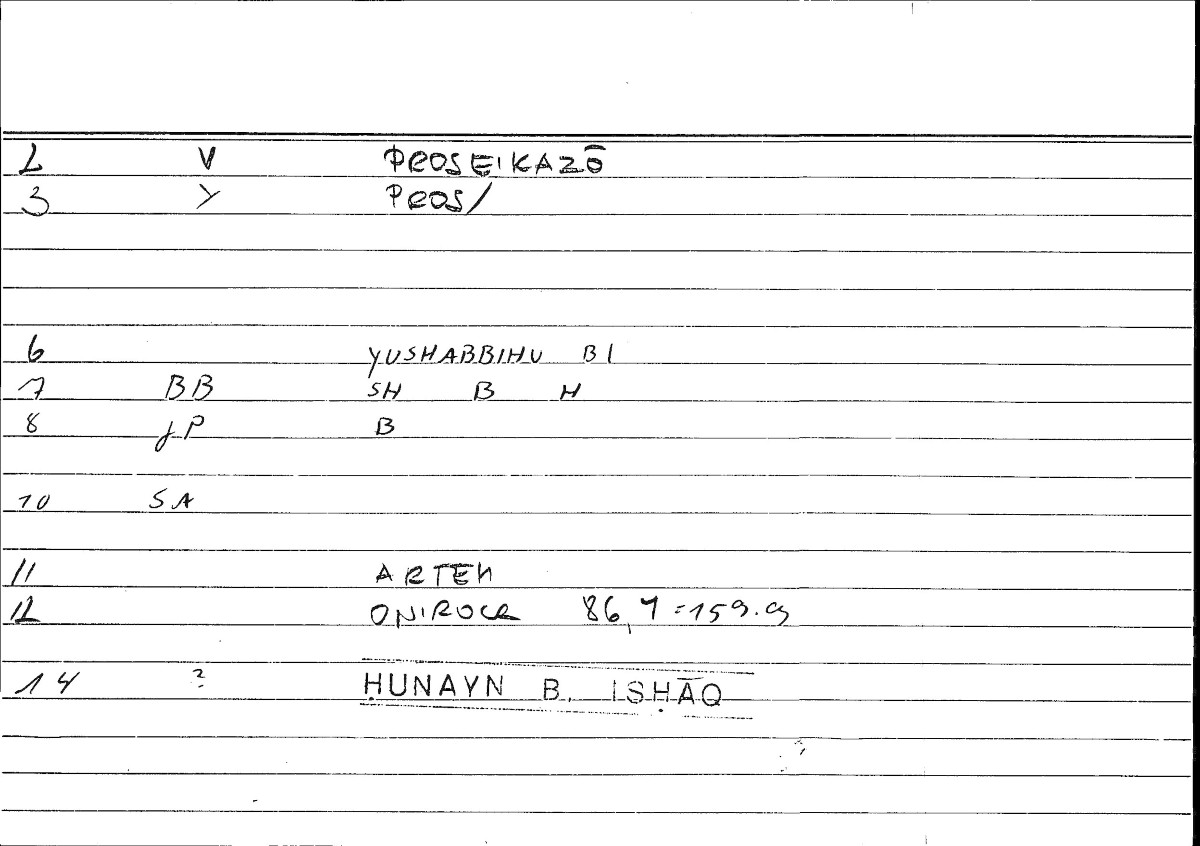 2 V PROSEIKAZŌ
3 Y PROS/
6 YUSHABBIHU BI
7 BB SH B H
8 JP B
10 SA
11 ARTEM
12 ONIROCR 86,7=159.9
14 ? ḤUNAYN B. ISḤĀQ